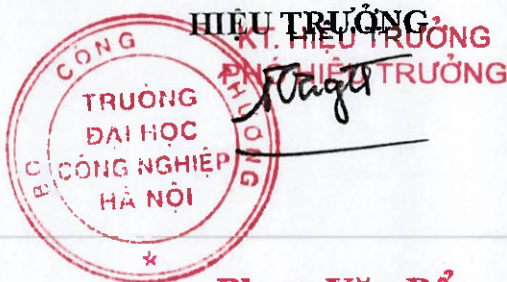 HIỆU TRƯỞNG
KT. HIỆU TRƯỞNG
PHÓ HIỆU TRƯỞNG
BỘ CÔNG THƯƠNG
TRƯỜNG
ĐẠI HỌC
CÔNG NGHIỆP
HÀ NỘI